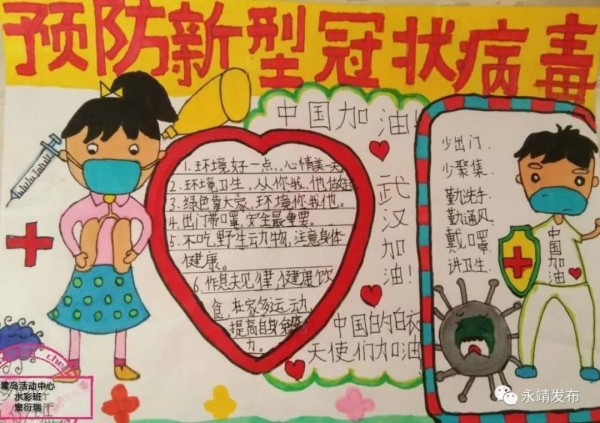 预防新型冠状病毒
中国加油!
1.环境好一点,心情美一天
2.环境卫生,从你我他做起
3.绿色靠大家,环境你我他。
4.出门带口罩,安全最重要。
5.不吃野生动物,注意身体
健康。
6.作息规律,健康饮
食,在家多运动,
提高自身免疫
力。
武汉加油!
中国的白衣
天使们加油!
少出门.
少聚集.
勤洗手.
勤通风
戴口罩
讲卫生.
中国加油
鹭岛活动中心
水彩班
窦衍瑞
永靖发布